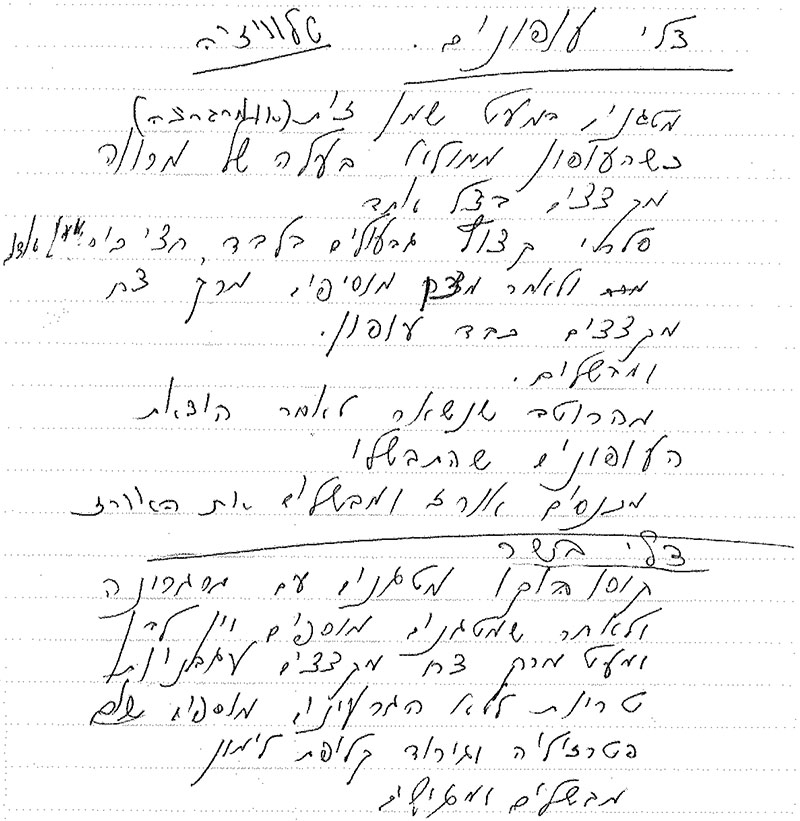 צלי עופונים. טלוויזיה
מטגנים במעט שמן זית (או מרגרינה)
כשהעופון ממולא בעלה של מרווה
מקצצים בצל אחד
סלרי קצוץ גבעולים בלבד, חצי כוס יין אדום
ולאחר מכן מוסיפים מרק צח
מקצצים כבד עופון.
ומבשלים.
מהרוטב שנשאר לאחר הוצאת
העופונים שהתבשלו
מכניסים אורז ומבשלים את האורז
צלי בשר
מטגנים עם מרגרינה
ולאחר שמטגנים מוספים יין לבן
ומעט מרק צח מקצצים עגבניות
טריות ללא הגרעינים מוספים שום
פטרוזיליה וגירוד קליפת לימון
מבשלים ומגישים